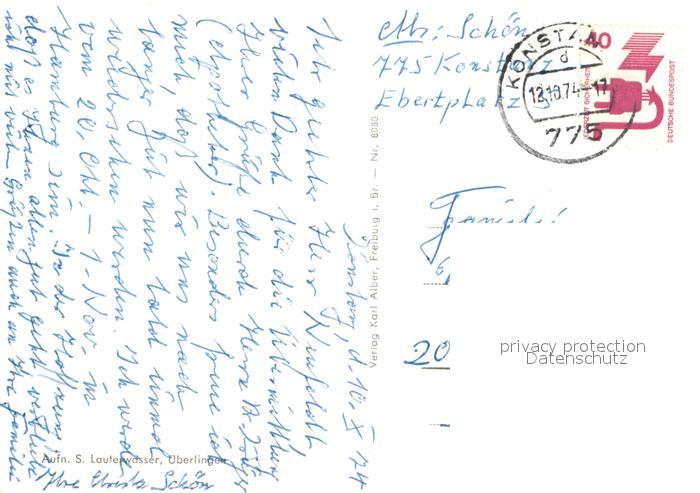 Abs: Schön
775 Konstanz
Ebertplatz
KONSTANZ
d
12.10.74-17
775
40
JEDERZEIT SICHERHEIT
DEUTSCHE BUNDESPOST
Familie
20
privacy protection
Datenschutz
Verlag Karl Alber, Freiburg i. Br. – Nr. 8080
Konstanz, d. 10. X 74
Sehr geehrter Herr Neufeldt
vielen Dank für die Übermittlung
Ihrer Grüße durch Herrn
Besonders freue ich
mich, daß wir uns nach
langer Zeit nun bald einmal
wiedersehen werden. Ich werde
vom 20. Okt. – 1. Nov. in
Hamburg sein. In der Hoffnung
daß es Ihnen allen gut geht verbleibe
ich mit vielen Grüßen auch an Ihre Familie
Ihre Schön
Aufn. S. Lauterwasser, Überlingen